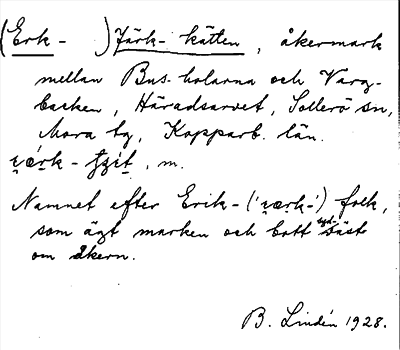 (Erk- ) Järk-kätten, åkermark
mellan Bus-holarna och Varg-
backen, Häradsarvet, Sollerö sn,
Mora tg, Kopparb. län.
m.
Namnet efter Erik- folk,
som ägt marken och bott syd-
väst
om åkern.
B. Lindén 1928.